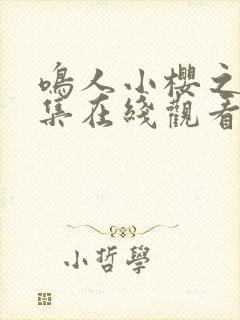 鳴人小櫻之
集在綫觀看
小哲學